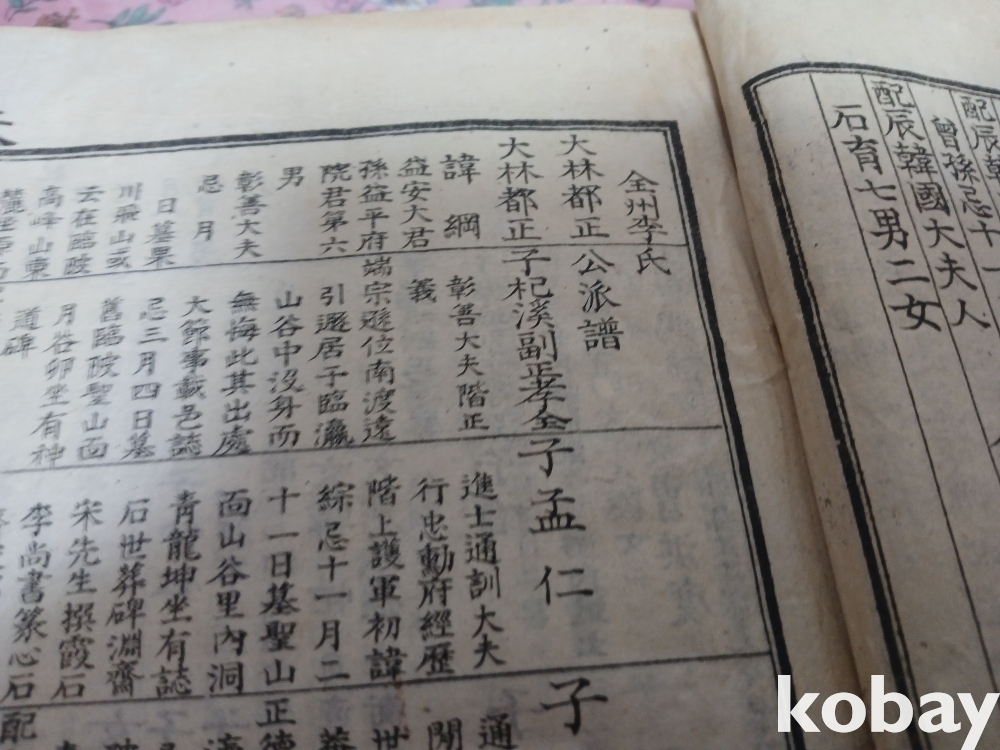 配辰韓
曾孫忌十一
配辰韓國大夫人
石育七男二女
全州李氏
大林都正
公派譜
大林都正
諱綱
益安大君
孫益平府
院君第六
男
彰善大夫
忌月
日墓票
川飛山或
云在臨陂
高峰山東
子杞溪副正孝全
彰善大夫階正
義
端宗遜位南渡遠
引遯居于臨瀛
山谷中沒身而
無悔此其出處
大節事載邑誌
忌三月四日墓
舊臨陂聖山面
月谷卯坐有神
道碑
子孟仁
進士通訓大夫
行忠勳府經歷
階上護軍初諱
綜忌十一月二
十一日墓聖山
面山谷里內洞
青龍坤坐有誌
石世葬碑淵齋
宋先生撰霞石
李尚書篆心石
子
通
閒
世
正德
配
kobay